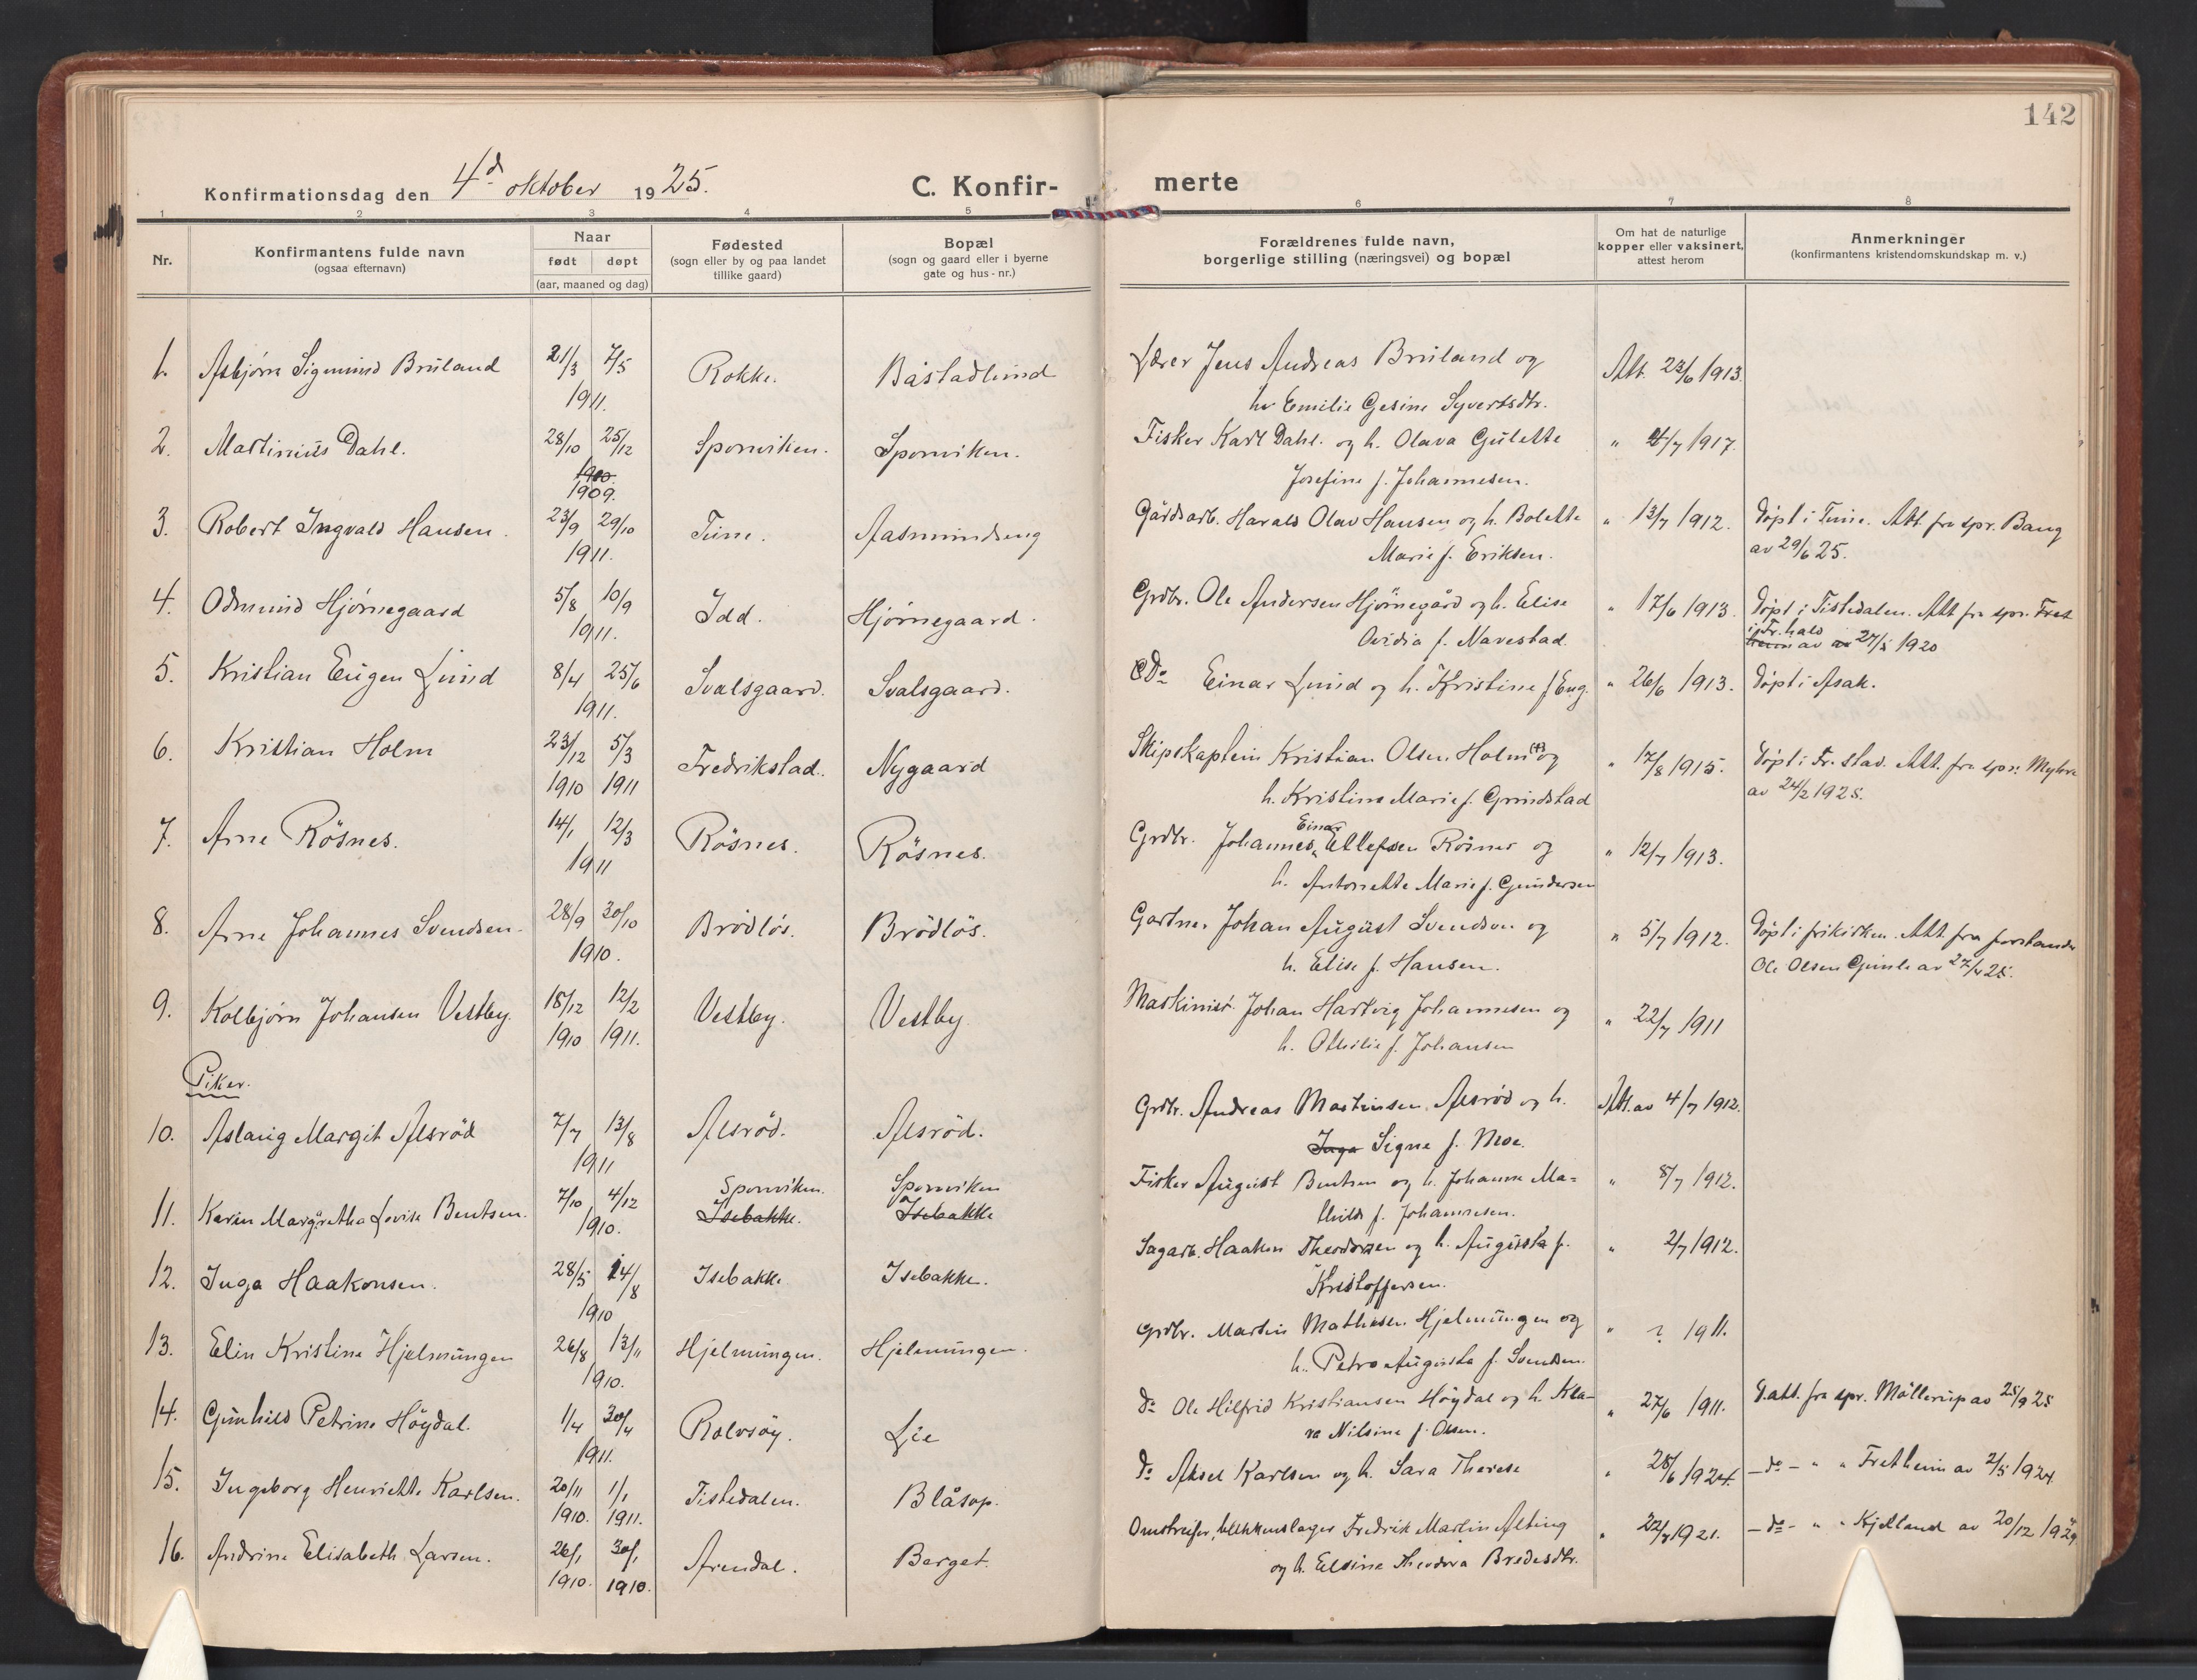 142
Konfirmationsdag den 4d oktober 1925.
C. Konfir-merte
1 2 3 4 5 6 7 8
Nr.
Konfirmantens fulde navn
(ogsaa efternavn)
Naar
født døpt
(aar, maaned og dag)
Fødested
(sogn eller by og paa landet
tillike gaard)
Bopæl
(sogn og gaard eller i byerne
gate og hus-nr.)
Forældrenes fulde navn,
borgerlige stilling (næringsvei) og bopæl
Om hat de naturlige
kopper eller vaksinert,
attest herom
Anmerkninger
(konfirmantens kristendomskundskap m. v.)
1. Asbjørn Sigmund Bruland 21/3 7/5 Rokke. Båstadlund Lærer Jens Andreas Bruland og Att. 23/6 1913.
1911. hu Emilie Gesine Syvertsdtr.
2. Martinius Dahl. 28/10 25/12 Sponviken. Sponviken. Fisker Karl Dahl. og h. Olava Gulette " 4/7 1917.
1910. Josefine f. Johannesen.
1909.
3. Robert Ingvald Hansen. 23/9 29/10 Tune. Aasmundseng Gårdsarb. Harald Olav Hansen og h. Bolette " 13/7 1912. Døpt i Tune. Att. fra spr. Bang
1911. Marie f. Eriksen. av 29/6 25.
4. Odmund Hjørnegaard 5/8 10/9 Idd. Hjørnegaard. Grdbr. Ole Andersen Hjørnegård og h. Elise " 17/6 1913. Døpt i Tistedalen. Att fra spr. Fret
1911. Ovidia f. Navestad. i Fr.hald
heim av 27/5 1920
5. Kristian Eugen Lund 8/4 25/6 Svalsgaard. Svalsgaard. Do Einar Lund og h. Kristine f Eng. " 26/6 1913. Døpt i Asak.
1911.
6. Kristian Holm 23/12 5/3 Fredrikstad. Nygaard Skipskaptein Kristian Olsen Holm (+) og " 17/8 1915. Døpt i Fr. stad. Att. fra spr.
1910 1911 h. Kristine Marie f. Grindstad av 24/2 1925.
7. Arne Røsnes. 14/1 12/3 Røsnes. Røsnes. Grdbr. Johannes Einar Ellefsen Røsnes og " 12/7 1913.
1911 h. Antonette Marie f. Gundersen
8. Arne Johannes Svendsen. 28/9 30/10 Brødløs. Brødløs. Gartner Johan August Svendsen og " 5/7 1912. Døpt i frikirken. Att fra forstander
1910. h. Elise f. Hansen. Ole Olsen Gimle av 27/4 25.
9. Kolbjørn Johansen Vestby. 18/12 12/2 Vestby. Vestby. Maskinist Johan Hartvig Johannesen og " 22/7 1911
1910 1911. h. Othilie f. Johansen
Piker.
10. Aslaug Margit Alsrød 7/7 13/8 Alsrød. Alsrød. Grdbr. Andreas Martinsen Alsrød og h. Att. av 4/7 1912.
1911 Inga Signe f. Moe.
Sponviken. Sponviken
11. Karin Margretha Lovise Bentsen. 7/10 4/12 Isebakke. Isebakke Fisker August Bentsen og h. Johanne Ma= " 8/7 1912.
1910. thilde f. Johannesen.
12. Inga Haakonsen. 28/5 14/8 Isebakke Isebakke. Sagarb. Haakon Theodorsen og h. Augusta f. " 2/7 1912.
1910 Kristoffersen.
13. Elin Kristine Hjelmungen 26/8 13/11 Hjelmungen. Hjelmungen. Grdbr. Martin Mathisen Hjelmungen og " ? 1911.
1910. h. Petra Augusta f. Svendsen.
14. Gunhild Petrine Høgdal. 1/4 30/4 Rolvsøy. Lie do Ole Hilfrid Kristiansen Høgdal og h. Kla- " 27/6 1911. D.att. fra spr. Møllerup av 25/9 25
1911. ra Nilsine f. Olsen.
15. Ingeborg Henriette Karlsen. 20/11 1/1 Tistedalen. Blåsop. do Aksel Karlsen og h. Sara Therese " 28/6 1924. -do- " " Fretheim av 2/5 1924
1910. 1911.
16. Andrine Elisabeth Larsen. 26/1 30/1 Arendal. Berget. Omstreifer, blikkenslager Fredrik Martin Alting " 22/7 1921. -do- " " Kjelland av 20/12 1924
1910. 1910. og h. Eldine Theodora Bredesdtr.